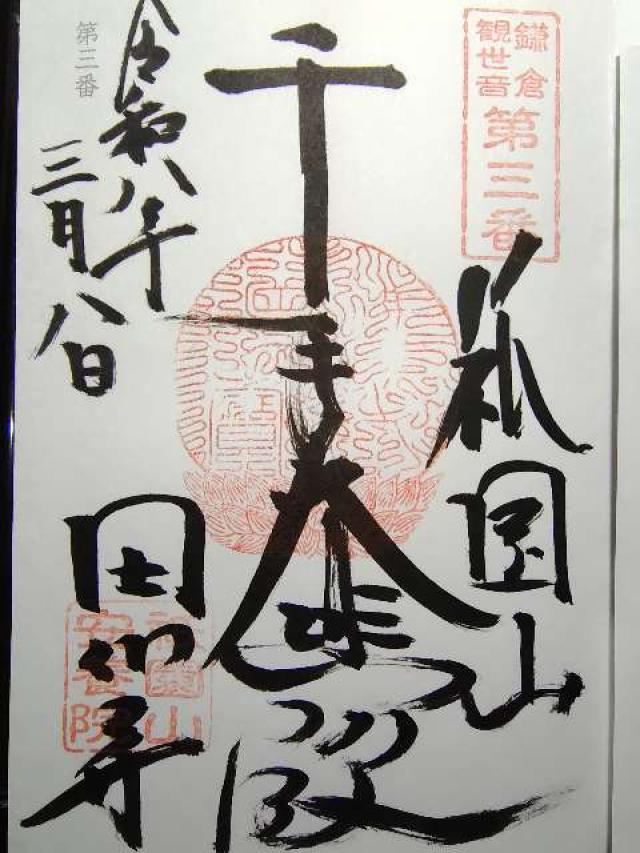 鎌倉
観世音
第三番
祇園山
千手大悲殿
田代寺
祇園山
安養院
令和八年
三月八日
第三番